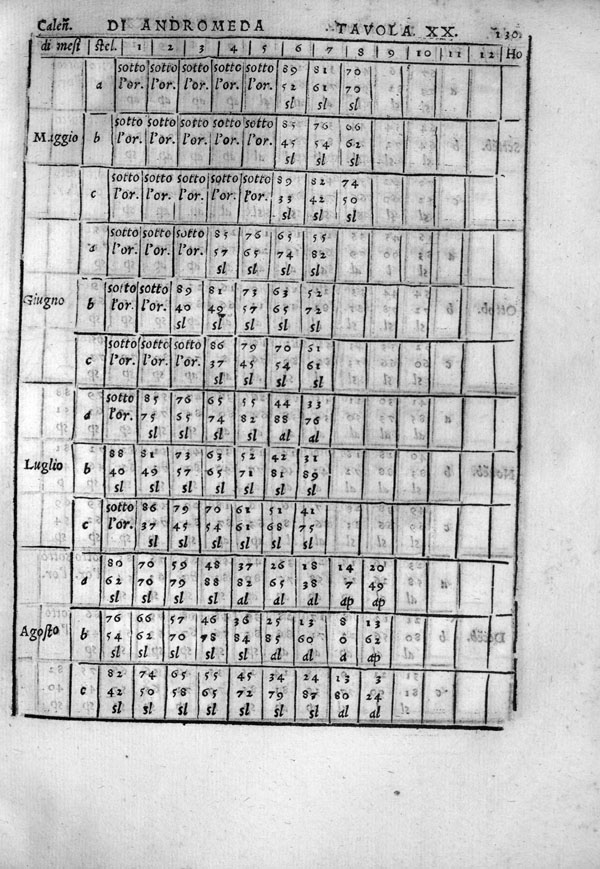 Caleñ. DI ANDROMEDA TAVOLA XX. 130.
di mesi stel. 1 2 3 4 5 6 7 8 9 10 11 12 Ho
sotto sotto sotto sotto sotto 89 81 70
a l'or. l'or. l'or. l'or. l'or. 52 61 70
sl sl sl
sotto sotto sotto sotto sotto 85 76 66
Maggio b l'or. l'or. l'or. l'or. l'or. 45 54 62
sl sl sl
sotto sotto sotto sotto sotto 89 82 74
c l'or. l'or. l'or. l'or. l'or. 33 42 50
sl sl sl
sotto sotto sotto 85 76 65 55
a l'or. l'or. l'or. 57 65 74 82
sl sl sl sl
sotto sotto 89 81 73 63 52
Giugno b l'or. l'or. 40 49 57 65 72
sl sl sl sl sl
sotto sotto sotto 86 79 70 61
c l'or. l'or. l'or. 37 45 54 61
sl sl sl sl
sotto 85 76 65 55 44 33
a l'or. 75 65 74 82 88 76
sl sl sl sl al al
88 81 73 63 52 42 31
Luglio b 40 49 57 65 71 81 89
sl sl sl sl sl sl sl
sotto 86 79 70 61 51 41
c l'or. 37 45 54 61 68 75
sl sl sl sl sl sl
80 70 59 48 37 26 18 14 20
a 62 70 79 88 82 65 38 7 49
sl sl sl sl al al al ap ap
76 66 57 46 36 25 13 8 13
Agosto b 54 62 70 78 84 85 60 0 62
sl sl sl sl sl al al a ap
82 74 65 55 45 34 24 13 3
c 42 50 58 65 72 79 87 80 24
sl sl sl sl sl sl sl al al